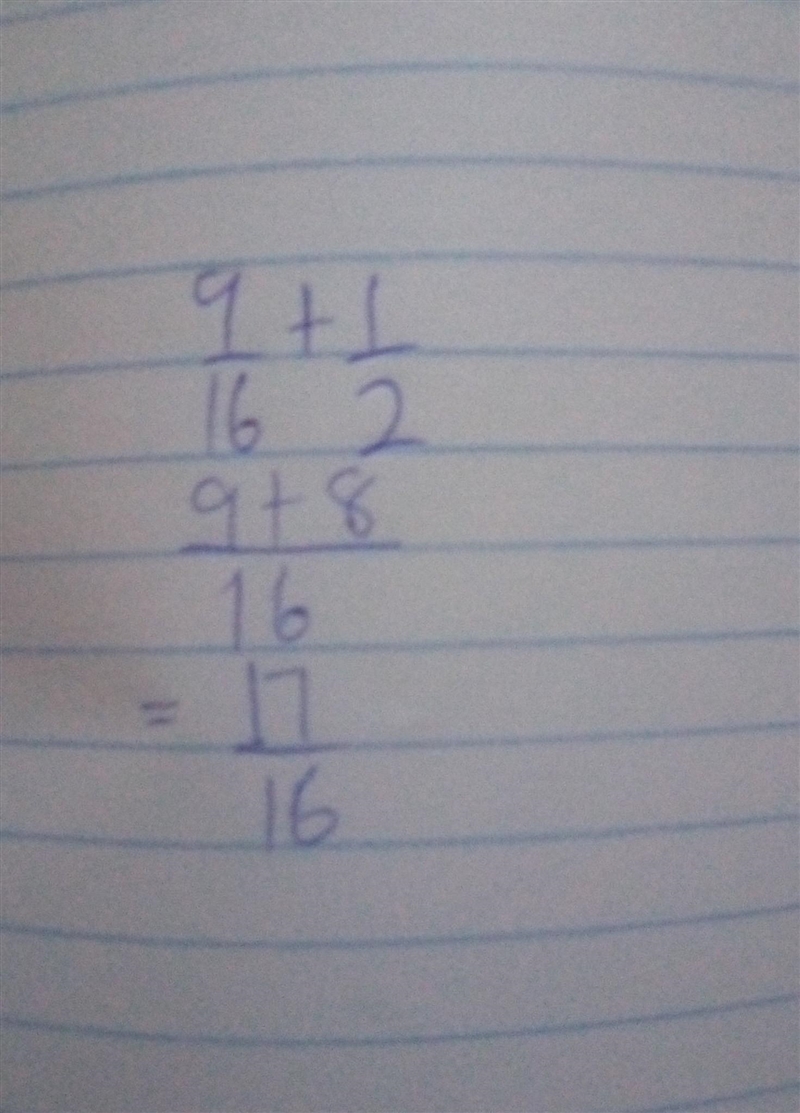 9/16 + 1/2
9+8/16
= 17/16